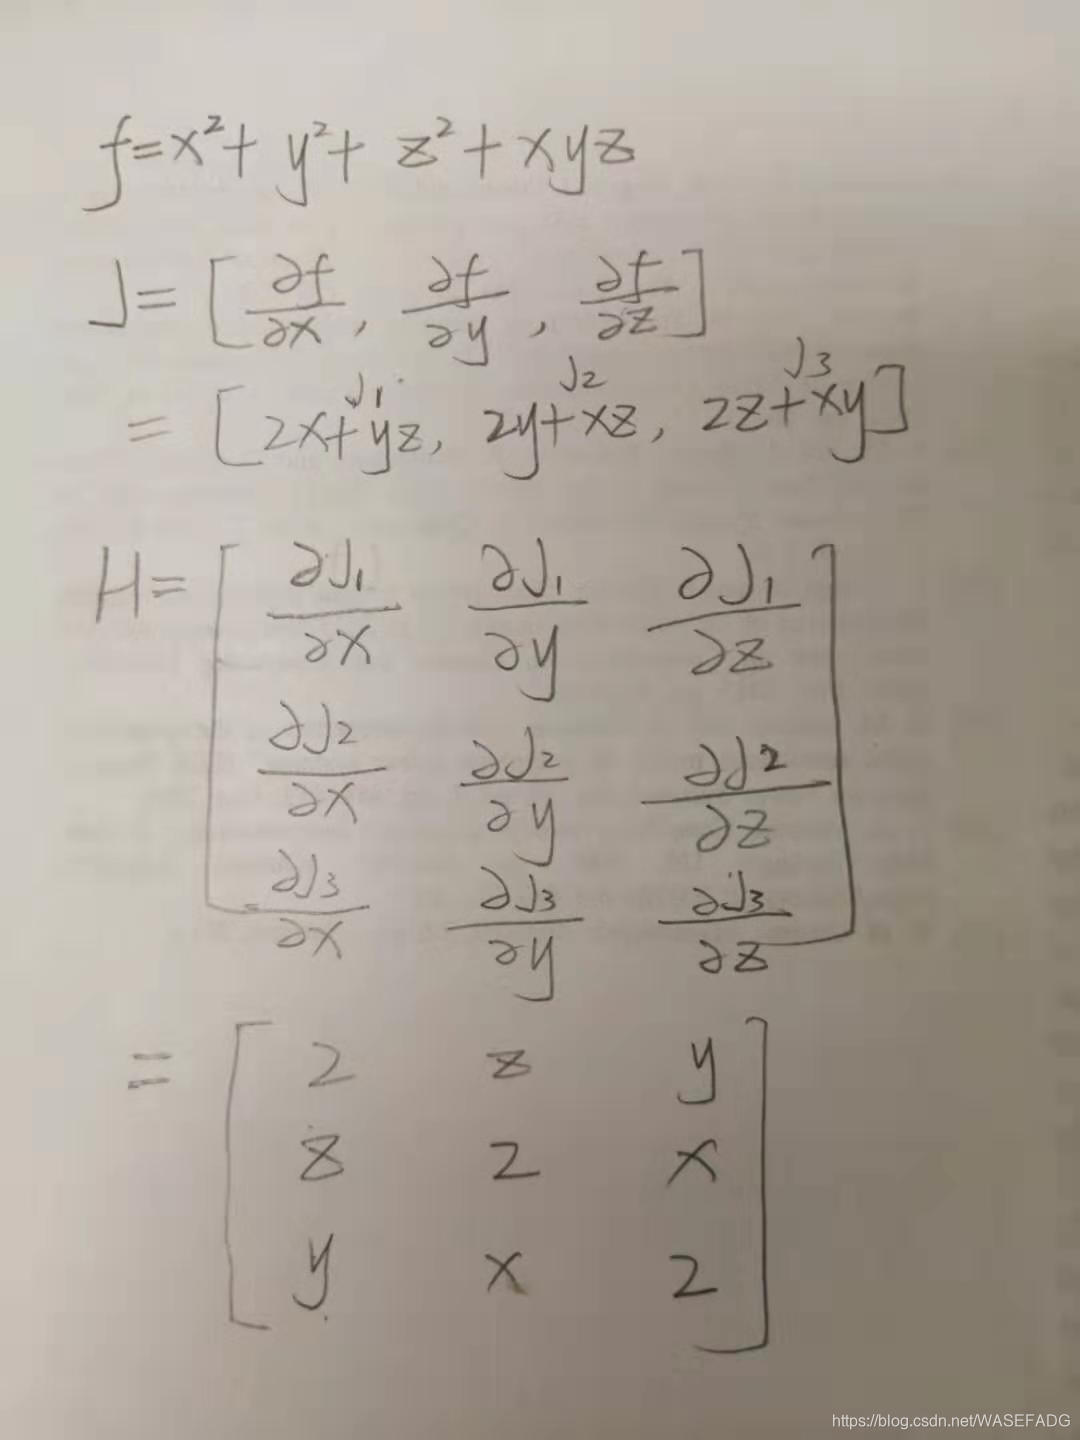 f=x²+y²+z²+xyz
J=[∂f/∂x, ∂f/∂y, ∂f/∂z]
J₁ J₂ J₃
=[2x+yz, 2y+xz, 2z+xy]
H=[∂J₁/∂x ∂J₁/∂y ∂J₁/∂z
∂J₂/∂x ∂J₂/∂y ∂J₂/∂z
∂J₃/∂x ∂J₃/∂y ∂J₃/∂z]
=[2 z y
z 2 x
y x 2]
https://blog.csdn.net/WASEFADG